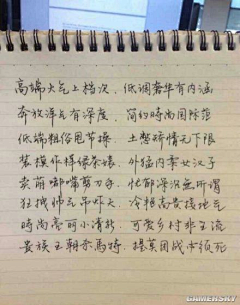 高端大气上档次、低调奢华有内涵
奔放洋气有深度、简约时尚国际范
低端粗俗甩节操、土憋矫情无下限
装模作样绿茶婊、外猛内柔女汉子
卖萌嘟嘴剪刀手、忧郁深沉无所谓
狂拽帅气吊炸天、冷艳高贵接地气
时尚亮丽小清新、可爱乡村非主流
贵族王朝杀马特、提莫团战本须死
GAMERSKY